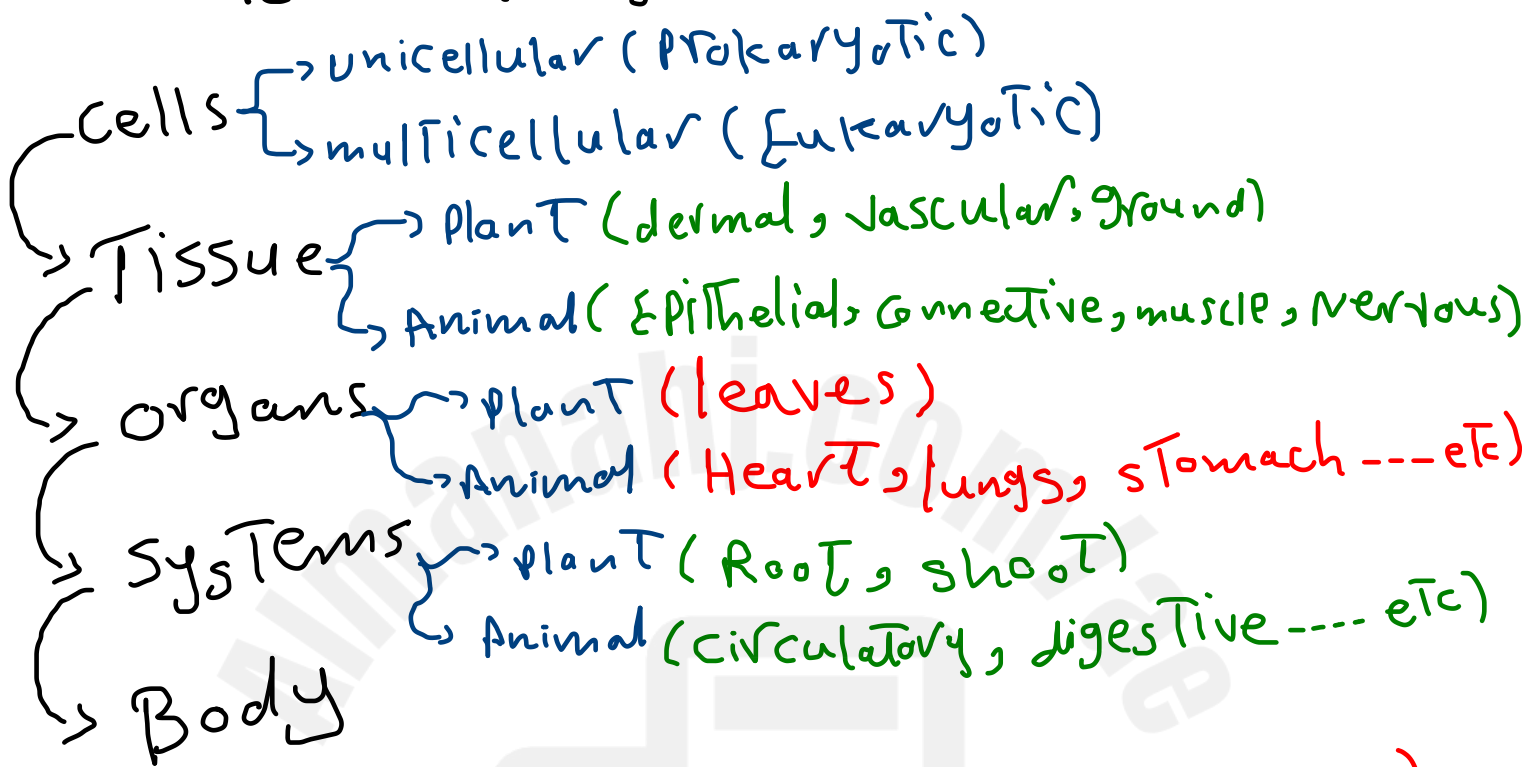 cells
unicellular (Prokaryotic)
multicellular (Eukaryotic)
Tissue
Plant (dermal, vascular, ground)
Animal (Epithelial, connective, muscle, Nervous)
organs
Plant (leaves)
Animal (Heart, lungs, stomach ---etc)
systems
Plant (Root, shoot)
Animal (circulatory, digestive ---- etc)
Body
Almanahj.com/ae